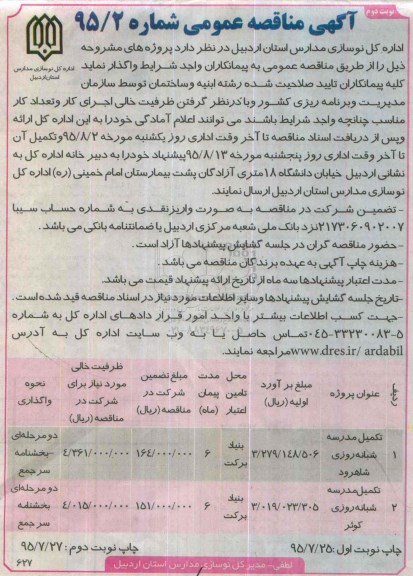 نوبت دوم
آگهی مناقصه عمومی شماره ۹۵/۲
اداره کل نوسازی مدارس استان اردبیل
اداره کل نوسازی مدارس استان اردبیل در نظر دارد پروژه های مشروحه
ذیل را از طریق مناقصه عمومی به پیمانکاران واجد شرایط واگذار نماید
کلیه پیمانکاران تایید صلاحیت شده رشته ابنیه وساختمان توسط سازمان
مدیریت وبرنامه ریزی کشور وبادرنظر گرفتن ظرفیت خالی اجرای کار وتعداد کار
مناسب چنانچه واجد شرایط باشند می توانند اعلام آمادگی خودرا به این اداره کل ارائه
وپس از دریافت اسناد مناقصه تا آخر وقت اداری روز یکشنبه مورخه ۹۵/۸/۲ وتکمیل آن
تا آخر وقت اداری روز پنجشنبه مورخه ۹۵/۸/۱۳ پیشنهاد خودرا به دبیر خانه اداره کل به
نشانی اردبیل خیابان دانشگاه ۱۸متری آزادگان پشت بیمارستان امام خمینی (ره) اداره کل
نوسازی مدارس استان اردبیل ارسال نمایند.
- تضمین شرکت در مناقصه به صورت واریز نقدی به شماره حساب سیبا
۲۱۷۳۰۶۰۹۰۲۰۰۷ نزد بانک ملی شعبه مرکزی اردبیل یا ضمانتنامه بانکی می باشد.
- حضور مناقصه گران در جلسه گشایش پیشنهادها آزاد است.
- هزینه چاپ آگهی به عهده برندگان مناقصه می باشد.
- مدت اعتبار پیشنهادها سه ماه از تاریخ ارائه پیشنهاد قیمت می باشد.
-تاریخ جلسه گشایش پیشنهادها وسایر اطلاعات مورد نیاز در اسناد مناقصه قید شده است.
-جهت کسب اطلاعات بیشتر با واحد امور قرار دادهای اداره کل به شماره
۰۴۵-۳۳۲۳۰۰۸۳-۵ تماس حاصل یا به وب سایت اداره کل به آدرس
www.dres.ir/ ardabil مراجعه نمایند.
ردیف | عنوان پروژه | مبلغ بر آورد اولیه (ریال) | محل تامین اعتبار | مدت پیمان (ماه) | مبلغ تضمین شرکت در مناقصه (ریال) | ظرفیت خالی مورد نیاز برای شرکت در مناقصه (ریال) | نحوه واگذاری
۱ | تکمیل مدرسه شبانه روزی شاهرود | ۳/۲۷۹/۱۴۸/۵۰۶ | بنیاد برکت | ۶ | ۱۶۴/۰۰۰/۰۰۰ | ۴/۳۶۱/۰۰۰/۰۰۰ | دو مرحله‌ای -بخشنامه سر جمع
۲ | تکمیل مدرسه شبانه روزی کوثر | ۳/۰۱۹/۰۲۳/۳۰۵ | بنیاد برکت | ۶ | ۱۵۱/۰۰۰/۰۰۰ | ۴/۰۱۵/۰۰۰/۰۰۰ | دو مرحله‌ای بخشنامه سر جمع
چاپ نوبت اول: ۹۵/۷/۲۵
چاپ نوبت دوم: ۹۵/۷/۲۷
لطفی- مدیر کل نوسازی مدارس استان اردبیل
۶۲۷